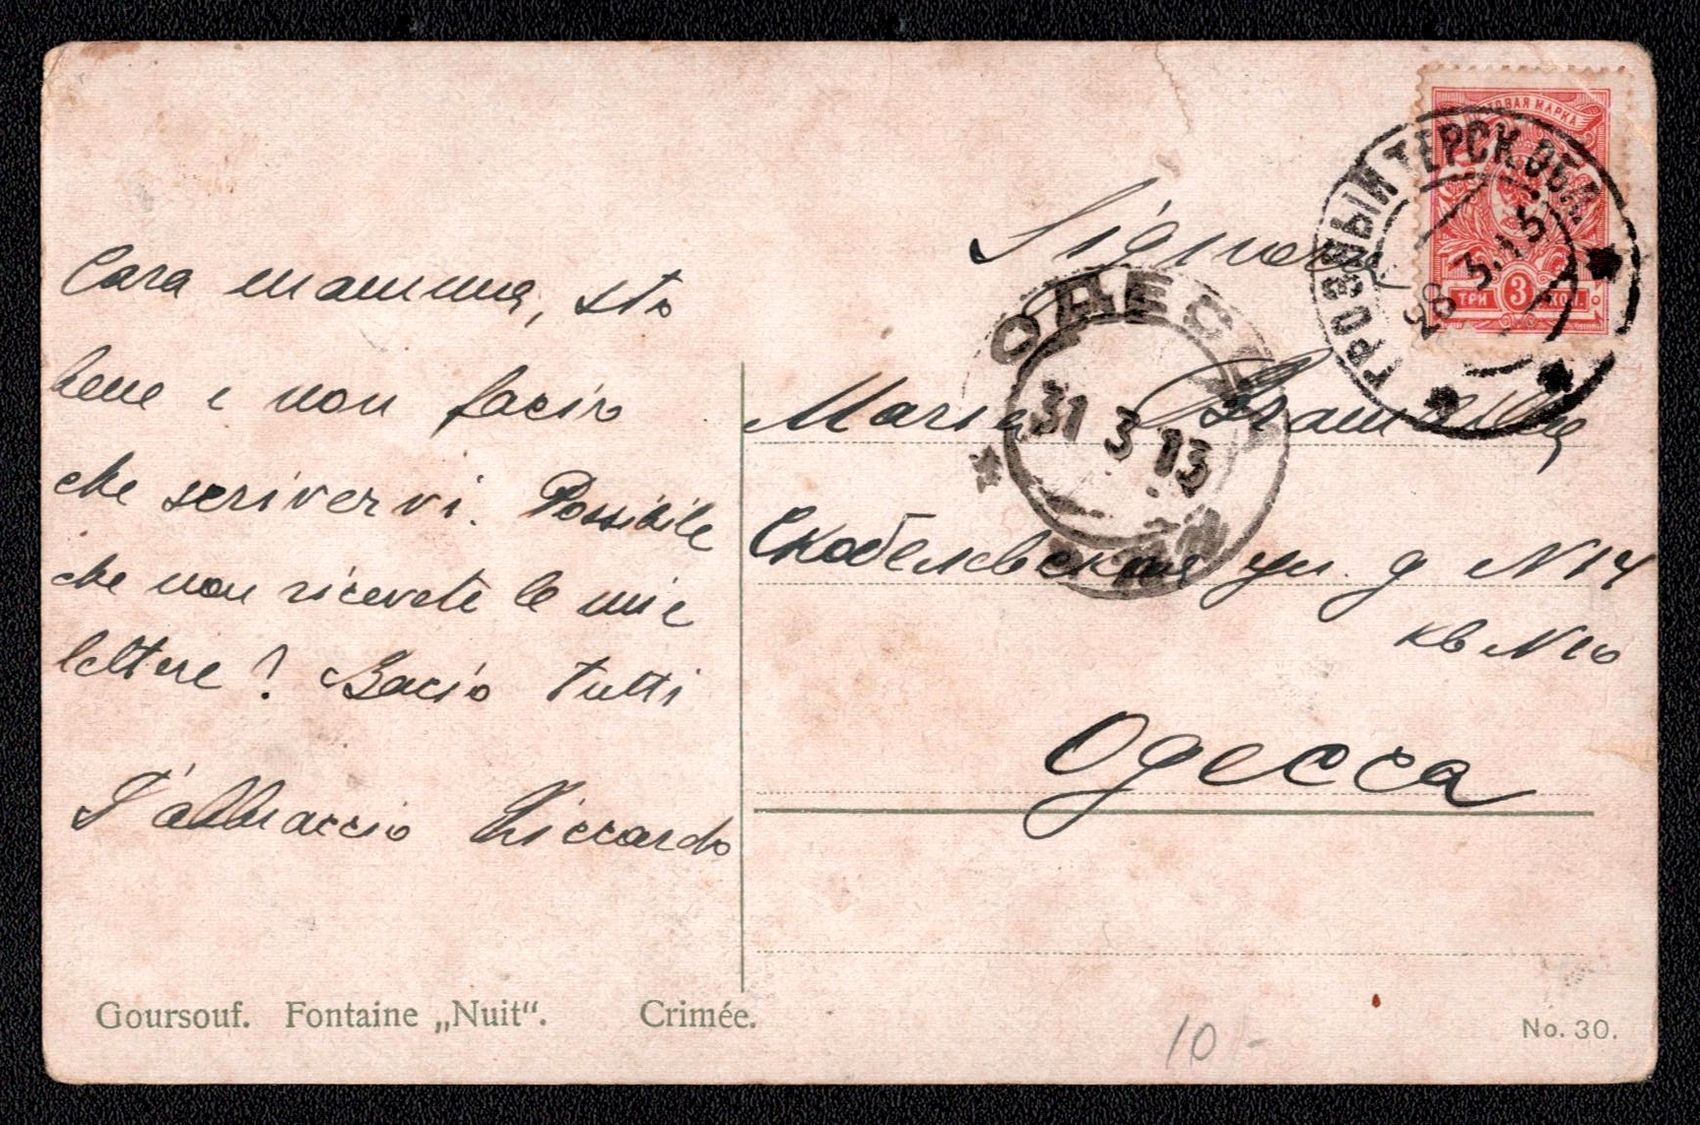 Cara mamma, sto
bene e non facio
che scrivervi. Possibile
che non ricevete le mie
lettere? Bacio tutti
T'abbraccio Riccardo
Signora
Maria
Скобелевская ул. д N 14
кв N 10
Одесса
ПОЧТОВАЯ МАРКА
ТРИ 3 КОП.
ГРОЗНЫЙ ТЕРСК. ОБЛ.
28 3
ОДЕССА
31 3 13
Goursouf. Fontaine „Nuit“. Crimée.
10 -
No. 30.